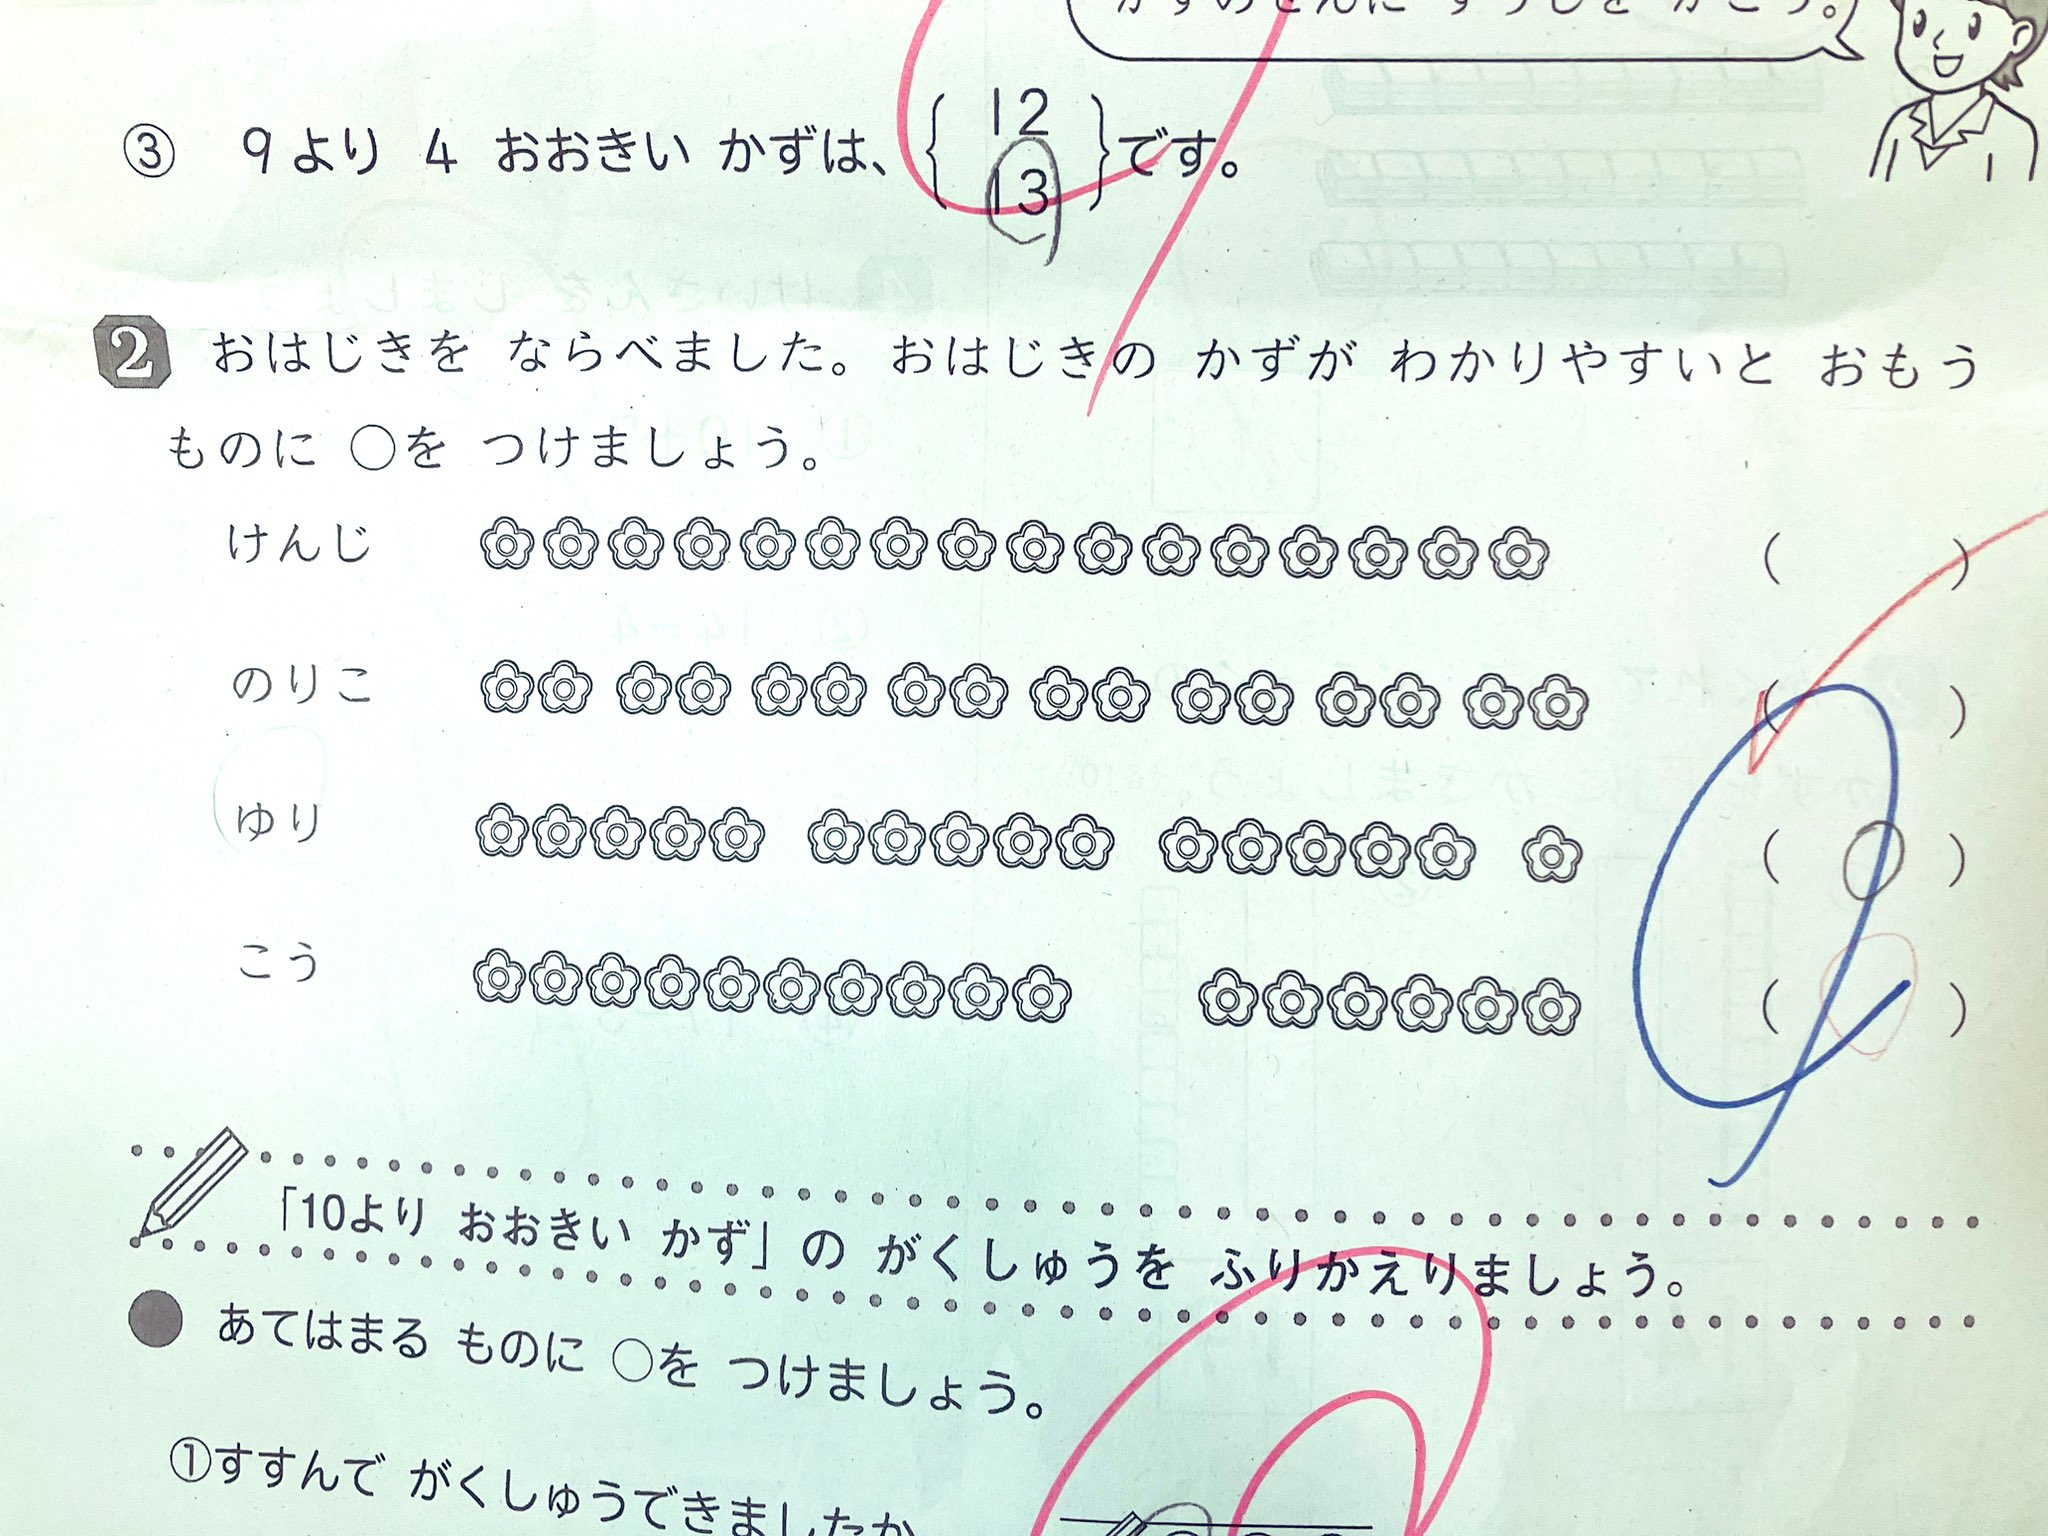 ③ 9より 4 おおきい かずは、{12 13}です。
2 おはじきを ならべました。おはじきの かずが わかりやすいと おもう
ものに ○を つけましょう。
けんじ ( )
のりこ ( )
ゆり ( ○ )
こう ( ○ )
「10より おおきい かず」の がくしゅうを ふりかえりましょう。
● あてはまる ものに ○を つけましょう。
①すすんで がくしゅうできましたか